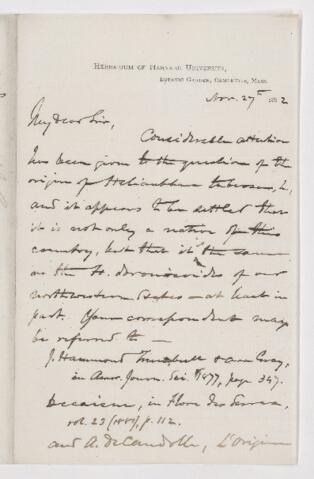 HERBARIUM OF HARVARD UNIVERSITY,
BOTANIC GARDEN, CAMBRIDGE, MASS.
Nov. 27th 1882
My dear Sir,
Considerable attention
has been given to the question of the
origin of Helianthus tuberosus, L,
and it appears to be settled that
it is not only a native of this
country, but that it is the same
as the H. doronicoides of our
northwestern States – at least in
part. Your correspondent may
be referred to —
J. Hammond Trumbull & Asa Gray,
in Amer. Journ. Sci. 1877, page 347.
Decaisne, in Flore des Serres,
vol. 23 (1881), p. 112.
and A. DeCandolle, L'Origine